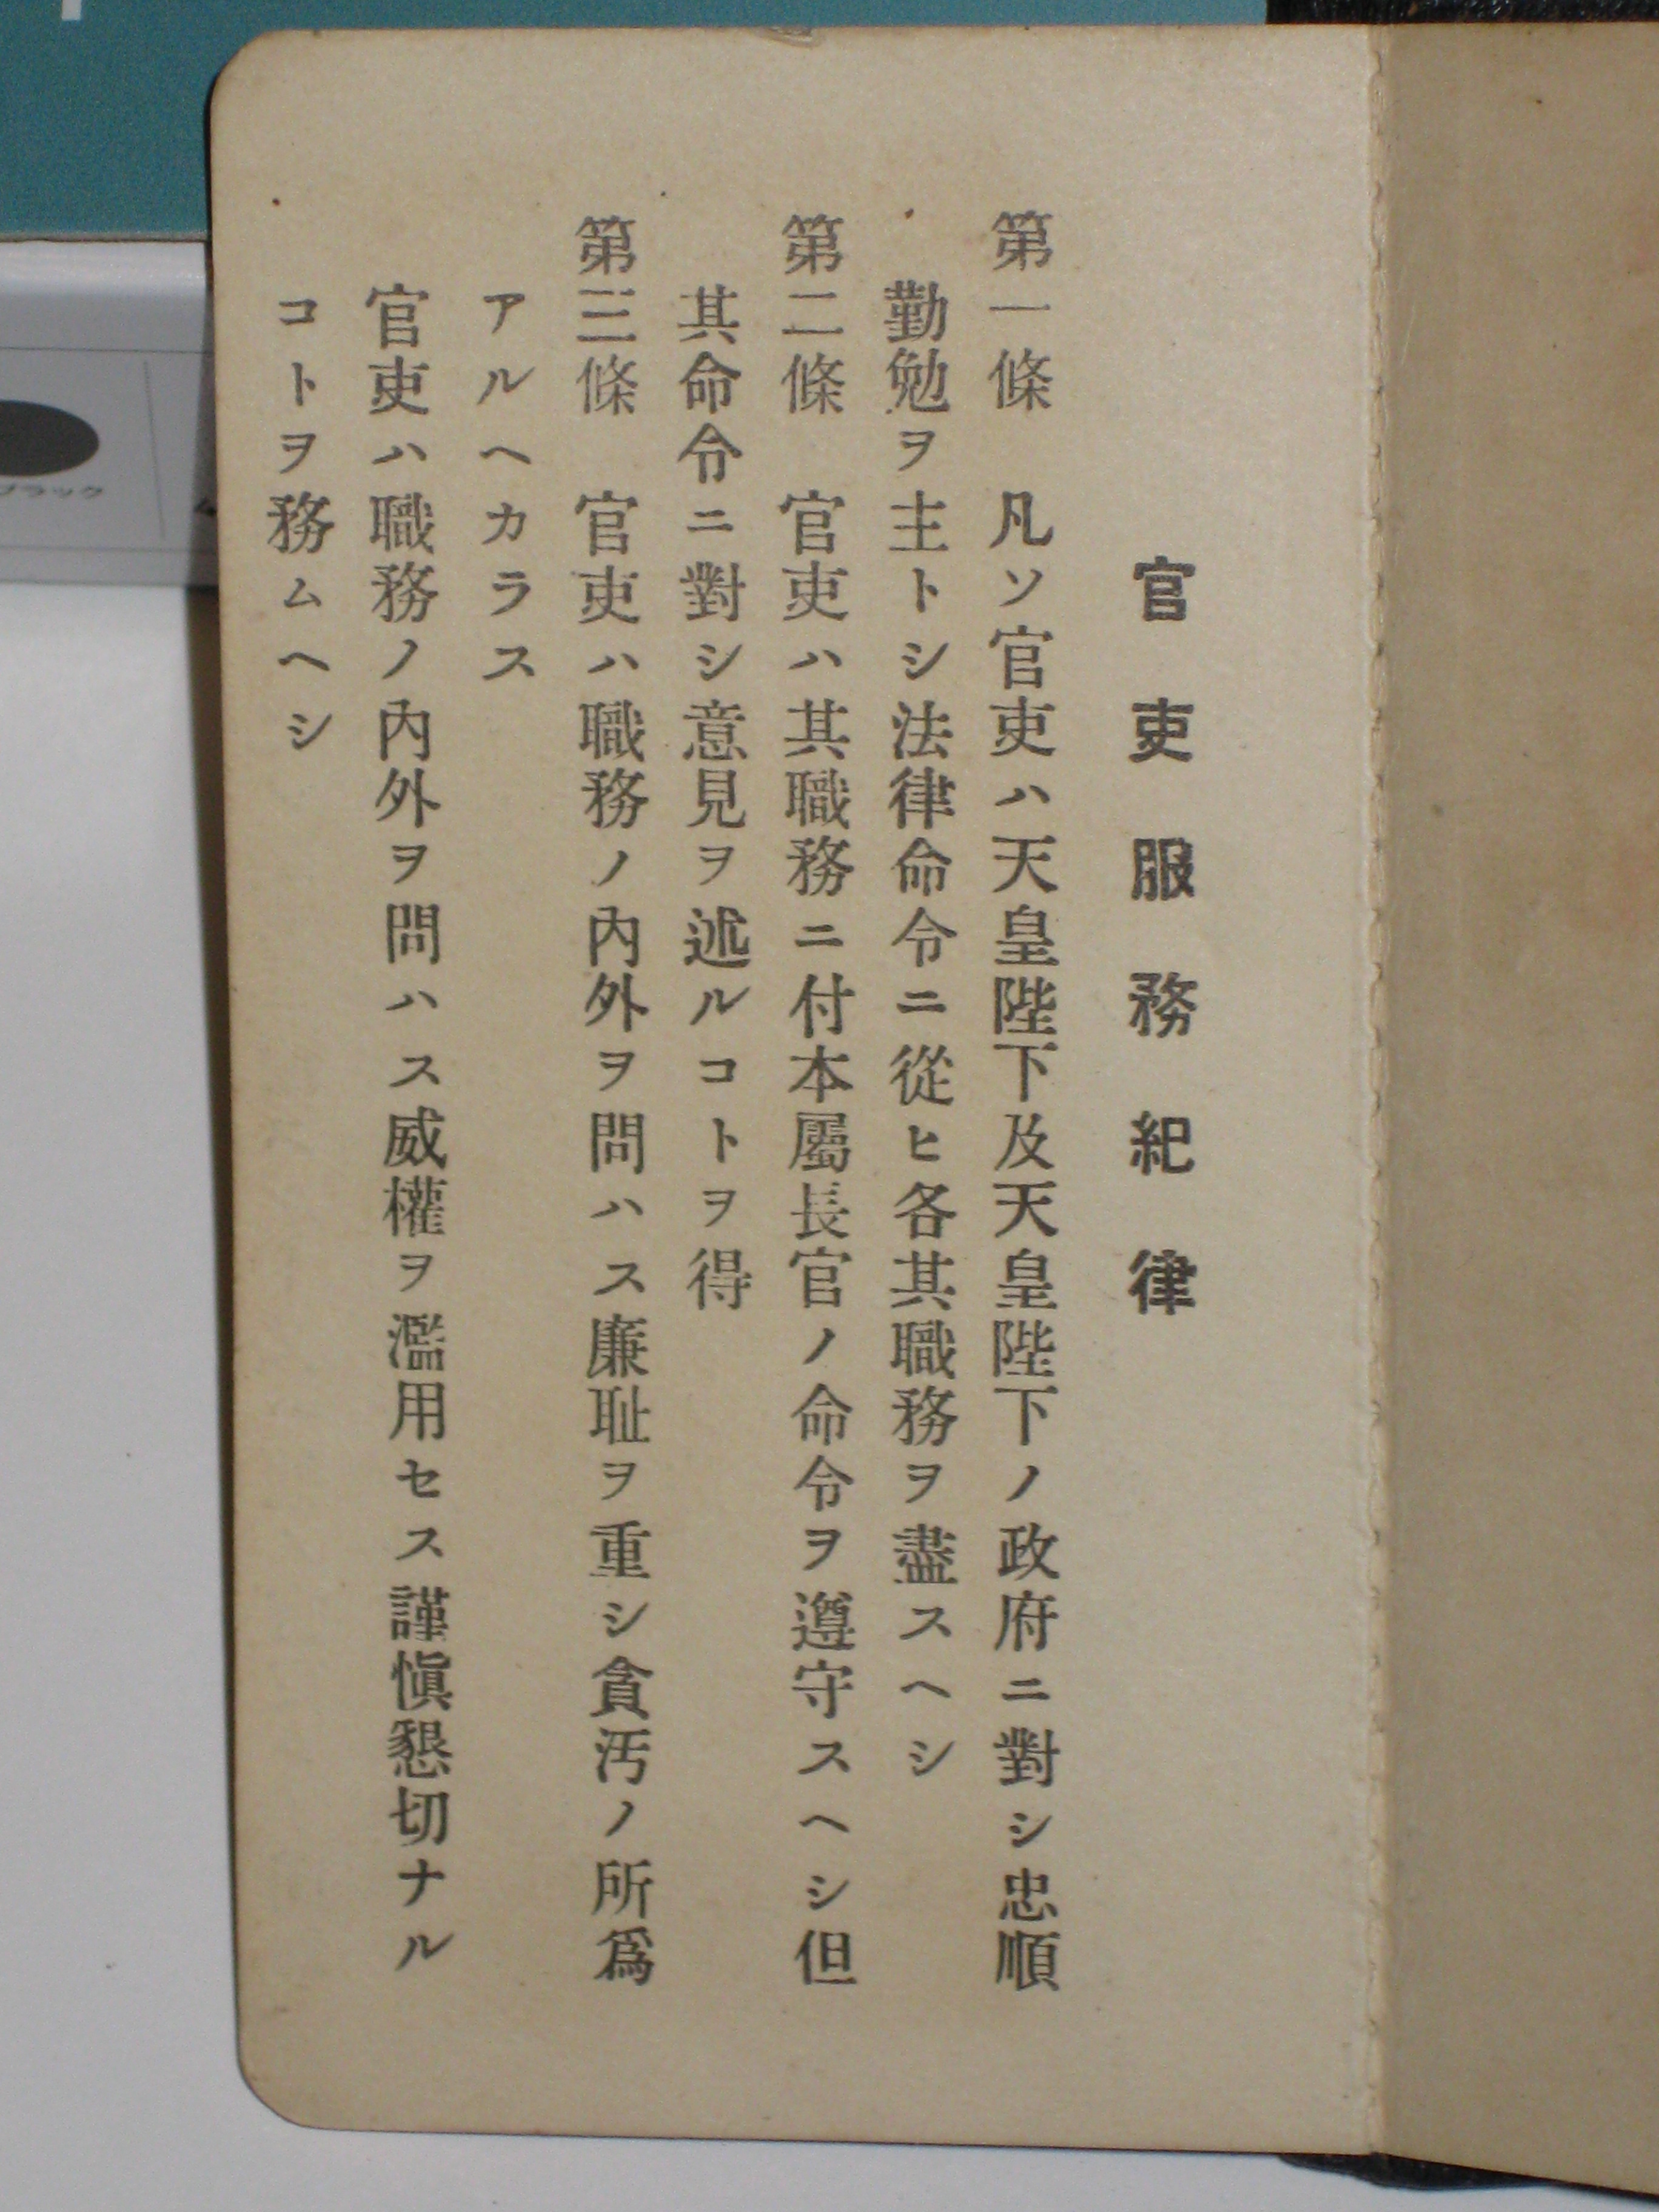 官吏服務紀律
第一條　凡ソ官吏ハ天皇陛下及天皇陛下ノ政府ニ對シ忠順
勤勉ヲ主トシ法律命令ニ從ヒ各其職務ヲ盡スヘシ
第二條　官吏ハ其職務ニ付本屬長官ノ命令ヲ遵守スヘシ但
其命令ニ對シ意見ヲ述ルコトヲ得
第三條　官吏ハ職務ノ內外ヲ問ハス廉耻ヲ重シ貪汚ノ所爲
アルヘカラス
官吏ハ職務ノ內外ヲ問ハス威權ヲ濫用セス謹愼懇切ナル
コトヲ務ムヘシ
ブラック